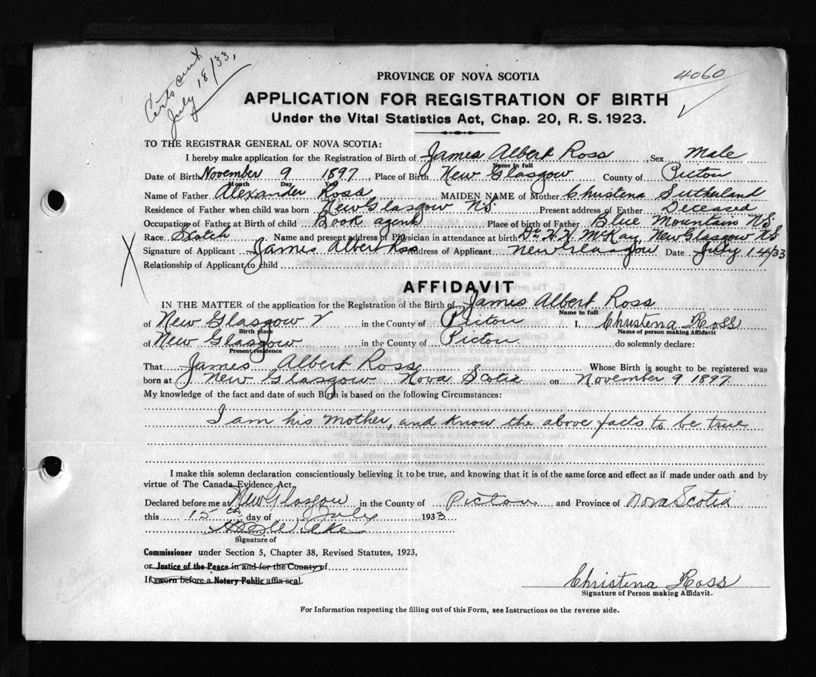 Certs sent
July 18/33,
4060
PROVINCE OF NOVA SCOTIA
APPLICATION FOR REGISTRATION OF BIRTH
Under the Vital Statistics Act, Chap. 20, R. S. 1923.
TO THE REGISTRAR GENERAL OF NOVA SCOTIA:
I hereby make application for the Registration of Birth of James Albert Ross , Sex Male
Name in full
Date of Birth November 9 1897 , Place of Birth New Glasgow County of Pictou
Month Day
Name of Father Alexander Ross MAIDEN NAME of Mother Christena Sutherland
Residence of Father when child was born New Glasgow NS Present address of Father Deceased
Occupation of Father at Birth of child Book agent Place of birth of Father Blue Mountain NS
Race Scotch Name and present address of Physician in attendance at birth Dr. McKay, New Glasgow NS
Signature of Applicant James Albert Ross Address of Applicant New Glasgow Date July 14/33
Relationship of Applicant to child
AFFIDAVIT
IN THE MATTER of the application for the Registration of the Birth of James Albert Ross
Name in full
of New Glasgow in the County of Pictou I, Christena Ross
Birth place Name of person making Affidavit
of New Glasgow in the County of Pictou do solemnly declare:
Present residence
That James Albert Ross Whose Birth is sought to be registered was
born at New Glasgow Nova Scotia on November 9 1897
My knowledge of the fact and date of such Birth is based on the following Circumstances:
I am his mother, and know the above facts to be true
I make this solemn declaration conscientiously believing it to be true, and knowing that it is of the same force and effect as if made under oath and by
virtue of The Canada Evidence Act.
Declared before me at New Glasgow in the County of Pictou and Province of Nova Scotia
this 15th day of July 1933
Signature of
Commissioner under Section 5, Chapter 38, Revised Statutes, 1923,
or Justice of the Peace in and for the County of
If sworn before a Notary Public affix seal.
Christena Ross
Signature of Person making Affidavit.
For Information respecting the filling out of this Form, see Instructions on the reverse side.